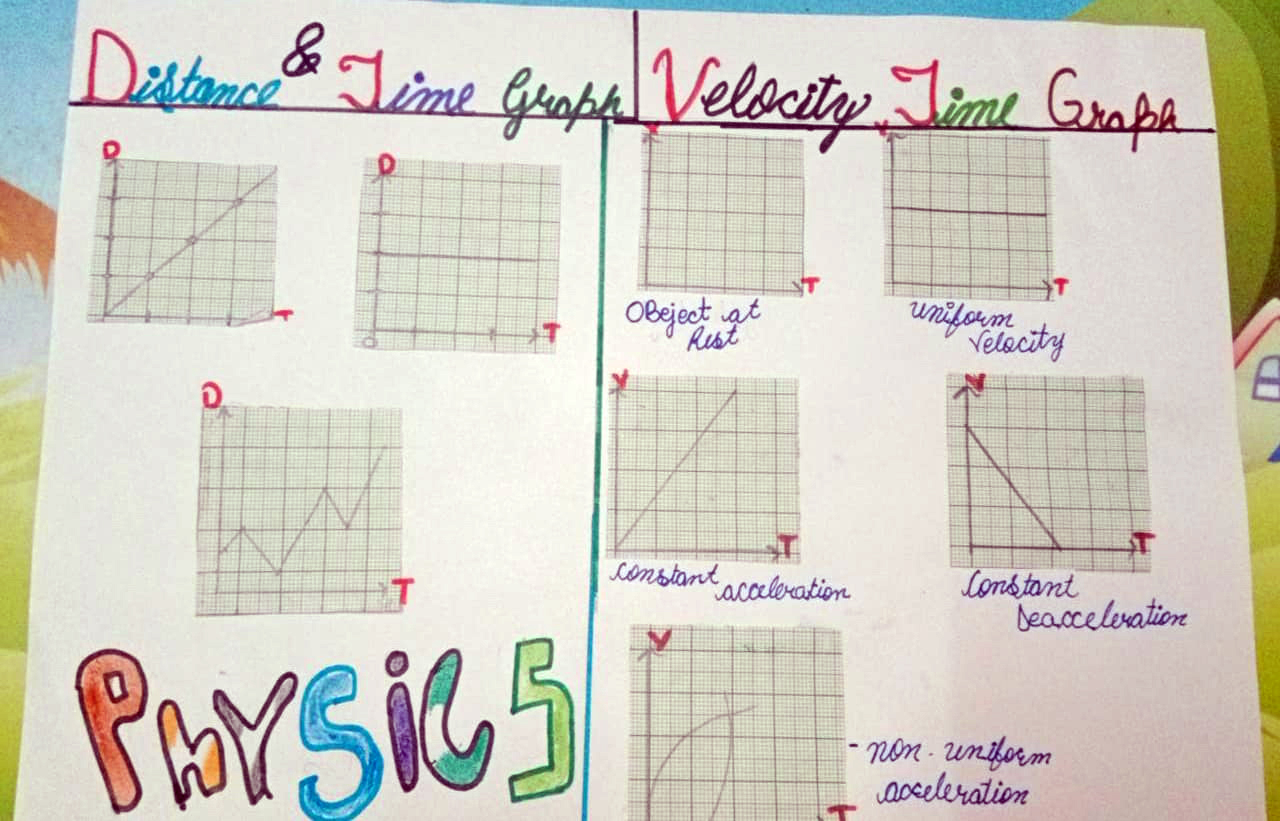 Distance & Time Graph
Velocity Time Graph
D
T
D
T
D
T
PHYSICS
V
T
OBeject at
Rest
V
T
uniform
Velocity
V
T
constant acceleration
V
T
Constant
Deacceleration
V
T
- non-uniform
acceleration